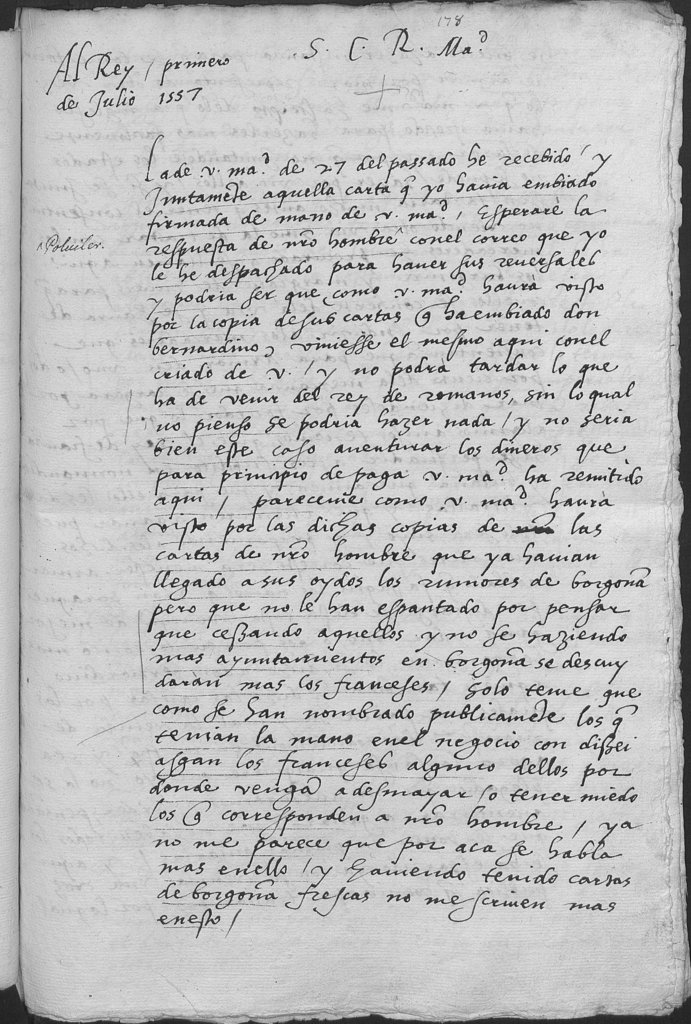 178
S. C. R. Mad.
Al Rey / primero
de Julio 1557
La de v. mad. de 27 del passado he recebido / y
Juntamẽte aquella carta q̃ yo havia embiado
firmada de mano de v. mad. / Esperarè la
Polwiler.
respuesta de nr̃o hombre conel correo que yo
le he despachado para haver sus reversales
y podria ser que como v. mad. haurà visto
por la copia de sus cartas q̃ ha embiado don
bernardino, viniesse el mesmo aqui conel
criado de v. / y no podra tardar lo que
ha de venir del rey de romanos, sin lo qual
no pienso se podria hazer nada / y no seria
bien este caso aventurar los dineros que
para principio de paga v. mad. ha remitido
aqui / pareceme como v. mad. haurà
visto por las dichas copias de las
cartas de nr̃o hombre que ya havian
llegado a sus oydos los rumores de borgoña
pero que no le han espantado por pensar
que cessando aquellos y no se haziendo
mas ayuntamientos en borgoña se descuy
daràn mas los franceses / Solo teme que
como se han nombrado publicamẽte los q̃
tenian la mano enel negocio con dissei
asgan los franceses alguno dellos por
donde vengã a desmayar / o tener miedo
los q̃ corresponden a nr̃o hombre / ya
no me parece que por aca se habla
mas enello / y haviendo tenido cartas
de borgoña frescas no me scriven mas
enesto /